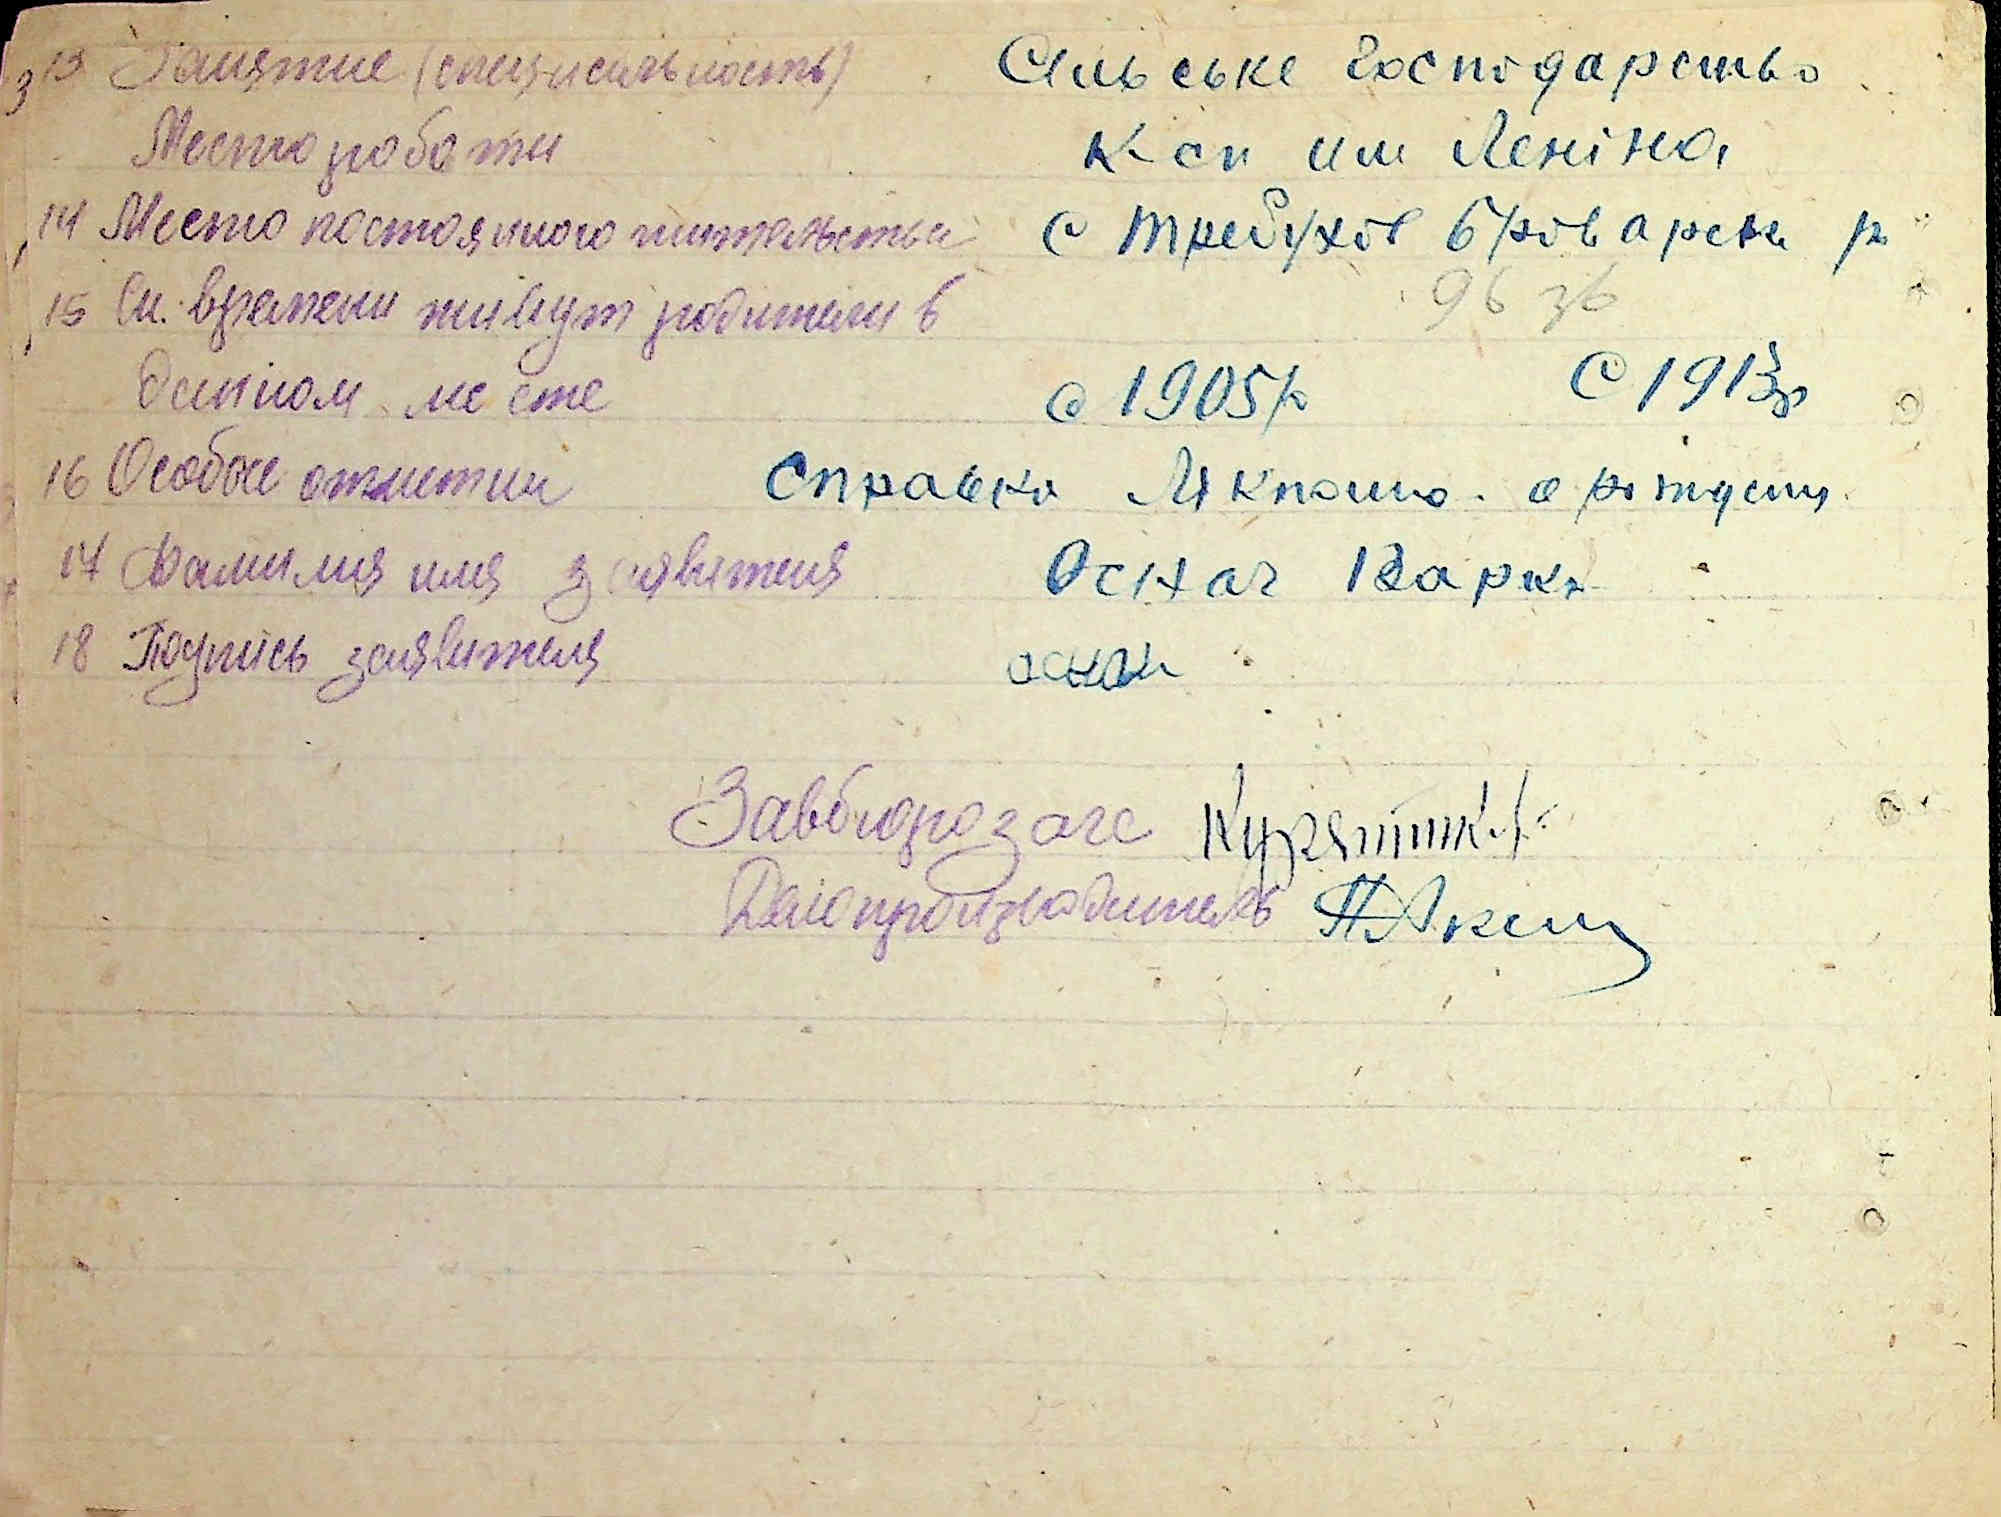 13 Занятие (специальность) Сільське господарство
Место работи К-сп им Леніна
14 Место постояного жительства с Требухов Броварськ р
15 Ск. времени живут родители в
даном месте с 1905р С 1913р
16 Особые отметки Справка о рождении
17 Фамилия имя заявителя Оснач Варка
18 Подпись заявителя оснач
Завбюро загс
Делопроизводитель